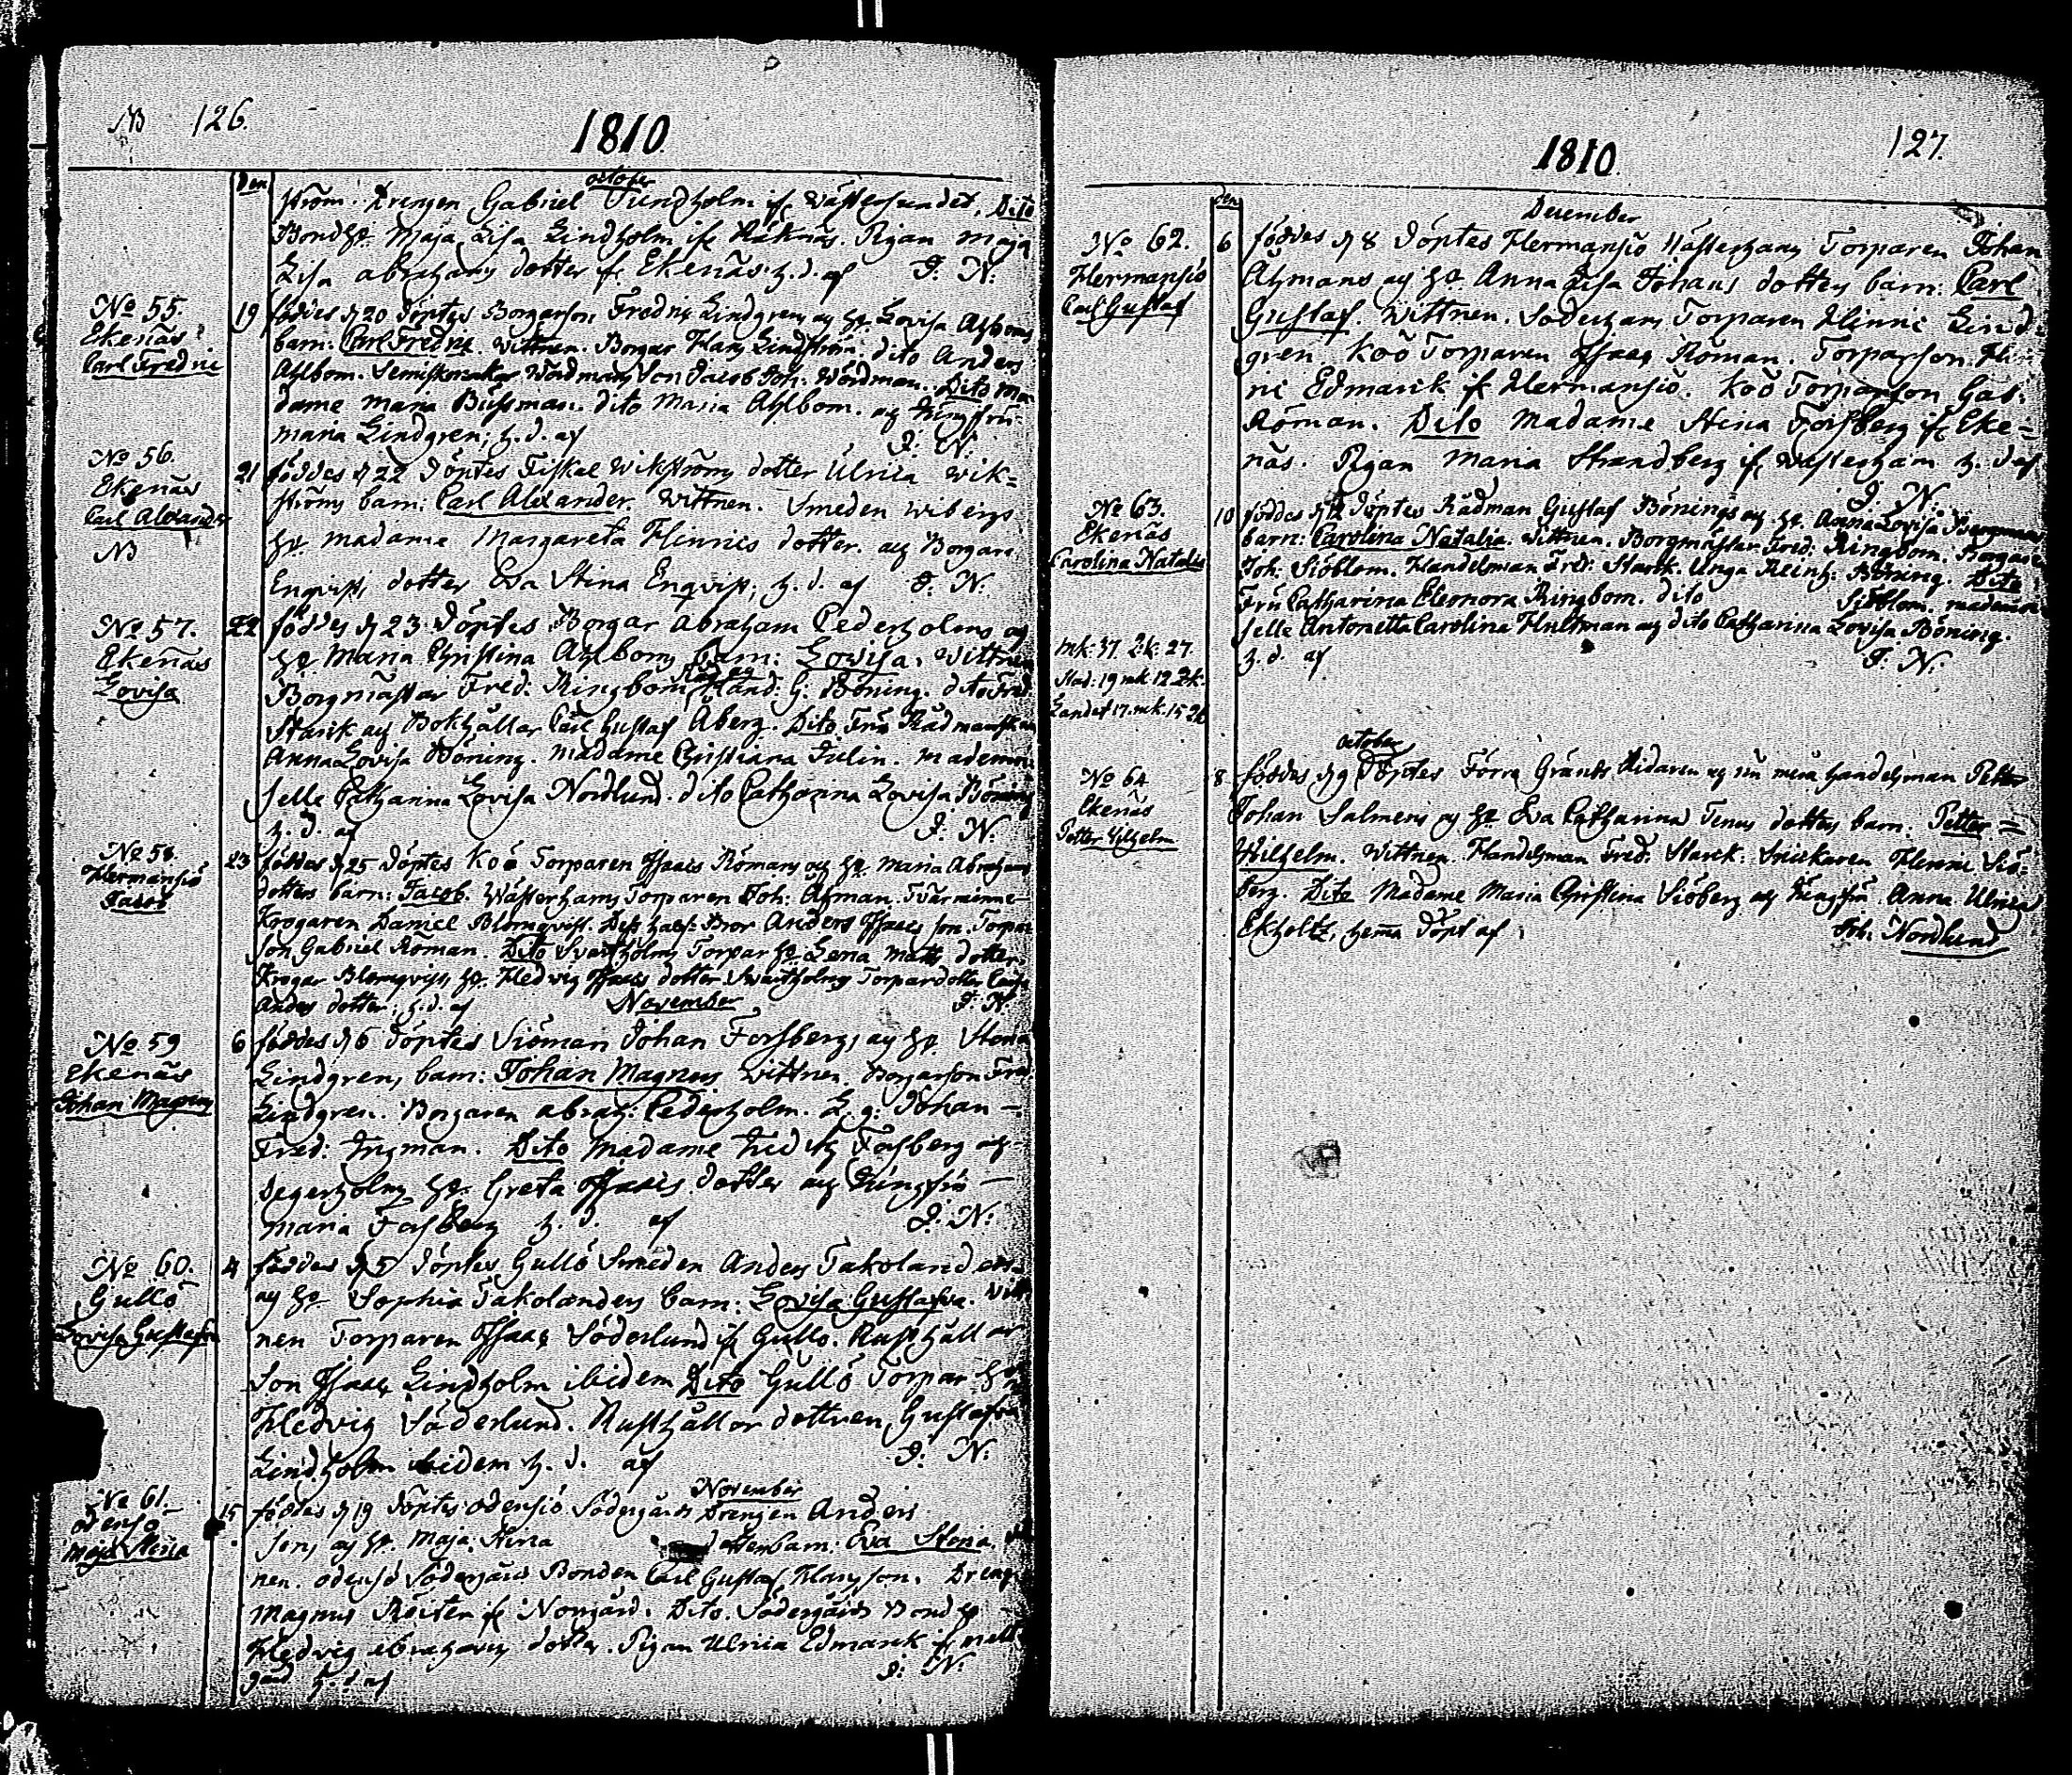 NB 126.
1810.
den
october
ström. Drengen Gabriel Sundholm ifr Wästersundet. Dito
Bondhu. Maja Lisa Lindholm ifr Räknäs. Pigan Maja
Lisa abrahams dotter fr. Ekenäs. h. d. af J. N.
No 55.
Ekenäs
Carl Fredric
19 föddes d 20 döptes Borgarson Fredric Lindgrens och hu. Lovisa Ahlboms
barn: Carl Fredric. Wittnen. Borgar Hans Lindström. dito Anders
Ahlbom. Wördmans Son Jacob Joh. Wördman. Dito Ma
dame Maria Bussman. dito Maria Ahlbom. och Jungfru
Maria Lindgren, h. d. af J. N.
No 56.
Ekenäs
Carl Alexander
NB
21 föddes d 22 döptes Fiskal Wikströms dotter Ulrica Wik=
ströms barn: Carl Alexander. Wittnen. Smeden Wibergs
hu. Madame Margareta Hinrics dotter. och Borgare
Enqvists dotter Eva Stina Enqvist, h. d. af J. N.
No 57.
Ekenäs
Lovisa
22 föddes d 23 döptes Borgar Abraham Cederholms och
hu Maria Christina Ahlboms barn: Lovisa. Wittnen
Borgmästar Fred: Ringbom, Hand: G: Böning. dito Fred:
Starck och Bokhållar Carl Gustaf Åberg. Dito Fru Rådmanskan
Anna Lovisa Böning. Madame Christiana Julin. Mademoi
selle Catharina Lovisa Nordlund. dito Catharina Lovisa Böning
h. d. af J. N.
No 58.
Hermansiö
Jacob
23 föddes d 25 döptes Koö Torparen Isaacs Romans och hu. Maria Abrahams
dotters barn: Jacob. Wästerhams Torparen Joh: Ahman. Tvärminne
Krogaren Daniel Blomqvist. Dess half Bror Anders Isaacs son. Torpar
son Gabriel Roman. Dito Svartholms Torpar hu. Lena Matts dotter.
Krogar Blomqvists hu. Hedvig Isaacs dotter Svartholms Torpardotter
Anders dotter, h. d. af J. N.
November
No 59
Ekenäs
Johan Magnus
6 föddes d 6 döptes Siöman Johan Forsbergs och hu. Stina
Lindgrens barn: Johan Magnus Wittnen. Borgarson Fred.
Lindgren. Borgaren abrah: Cederholm. L. g. Johan
Fred: Ingman. Dito Madame Forsberg och
Degerholms hu. Greta Isaacs dotter och Jungfru
Maria Forsberg h. d. af J. N.
No 60.
Gullö
Lovisa Gustafva
4 föddes d 5 döptes Gullö Smeden Anders Takolanders
och hu Sophia Takolanders barn: Lovisa Gustafva. Witt
nen Torparen Isaac Söderlund ifr Gullö. Rusthållar
Son Isaac Lindholm ibidem Dito Gullö Torpar hu.
Hedvig Söderlund. Rusthållar dottren Gustafva
Lindholm ibidem h. d. af J. N.
November
No 61.
Odensö
Maja Stina
15 föddes d 19 döptes Odensiö Södergårds Drengen Anders
sons och hu. Maja Stina dotters barn: Eva Stina
nen. Odensö Södergårds Bonden Carl Gustaf Hansson. Dreng
Magnus Röiter fr Norrgård. Dito. Södergårds Bond hu
Hedvig abrahams dotter. Pigan Ulrica Edmarck ifr mell
gård h. d. af J. N.
1810. 127.
den
December
No 62.
Hermansiö
Carl Gustaf
6 föddes d 8 döptes Hermansiö Wästerhams Torparen Johan
Ahmans och hu. Anna Lisa Johans dotters barn: Carl
Gustaf. Wittnen. Söderhams Torparen Hinric Lind
gren. Koö Torparen Isaac Roman. Torparson Hin
ric Edmarck fr Hermansiö. Koö Torparson Gab:
Roman. Dito Madame Stina Forsberg ifr Eke=
näs. Pigan Maria Strandberg ifr Wästerham h. d af
J. N.
No 63.
Ekenäs
Carolina Natalia
10 föddes d 12 döptes Rådman Gustaf Bönings och hu. Anna Lovisa Bergmans
barn: Carolina Natalia. Wittnen. Borgmästar Fred: Ringbom. Borgare
Joh. Siöblom. Handelman Fred: Starck. Unga Reinh: Böning. Dito
Fru Catharina Eleonora Ringbom. dito Siöblom. Mademoi
selle Antonetta Carolina Hultman och dito Catharina Lovisa Böning.
h. d. af J. N.
mk: 37. Qk: 27.
Stad: 19 mk. 12 Qk.
Landet 17. mk. 15 Qk
october
No 64
Ekenäs
Petter Wilhelm
8 föddes d 9 döptes Förra Gränts Ridaren och nu mera handelsman Petter
Johan Salmens och hu Eva Catharina Jenas dotters barn: Petter =
Wilhelm. Wittnen. Handelsman Fred: Starck. Snickaren Hinric Siö=
berg. Dito Madame Maria Christina Siöberg och Jungfru Anna Ulrica
Ekholtz, hema döpt af Joh. Nordlund